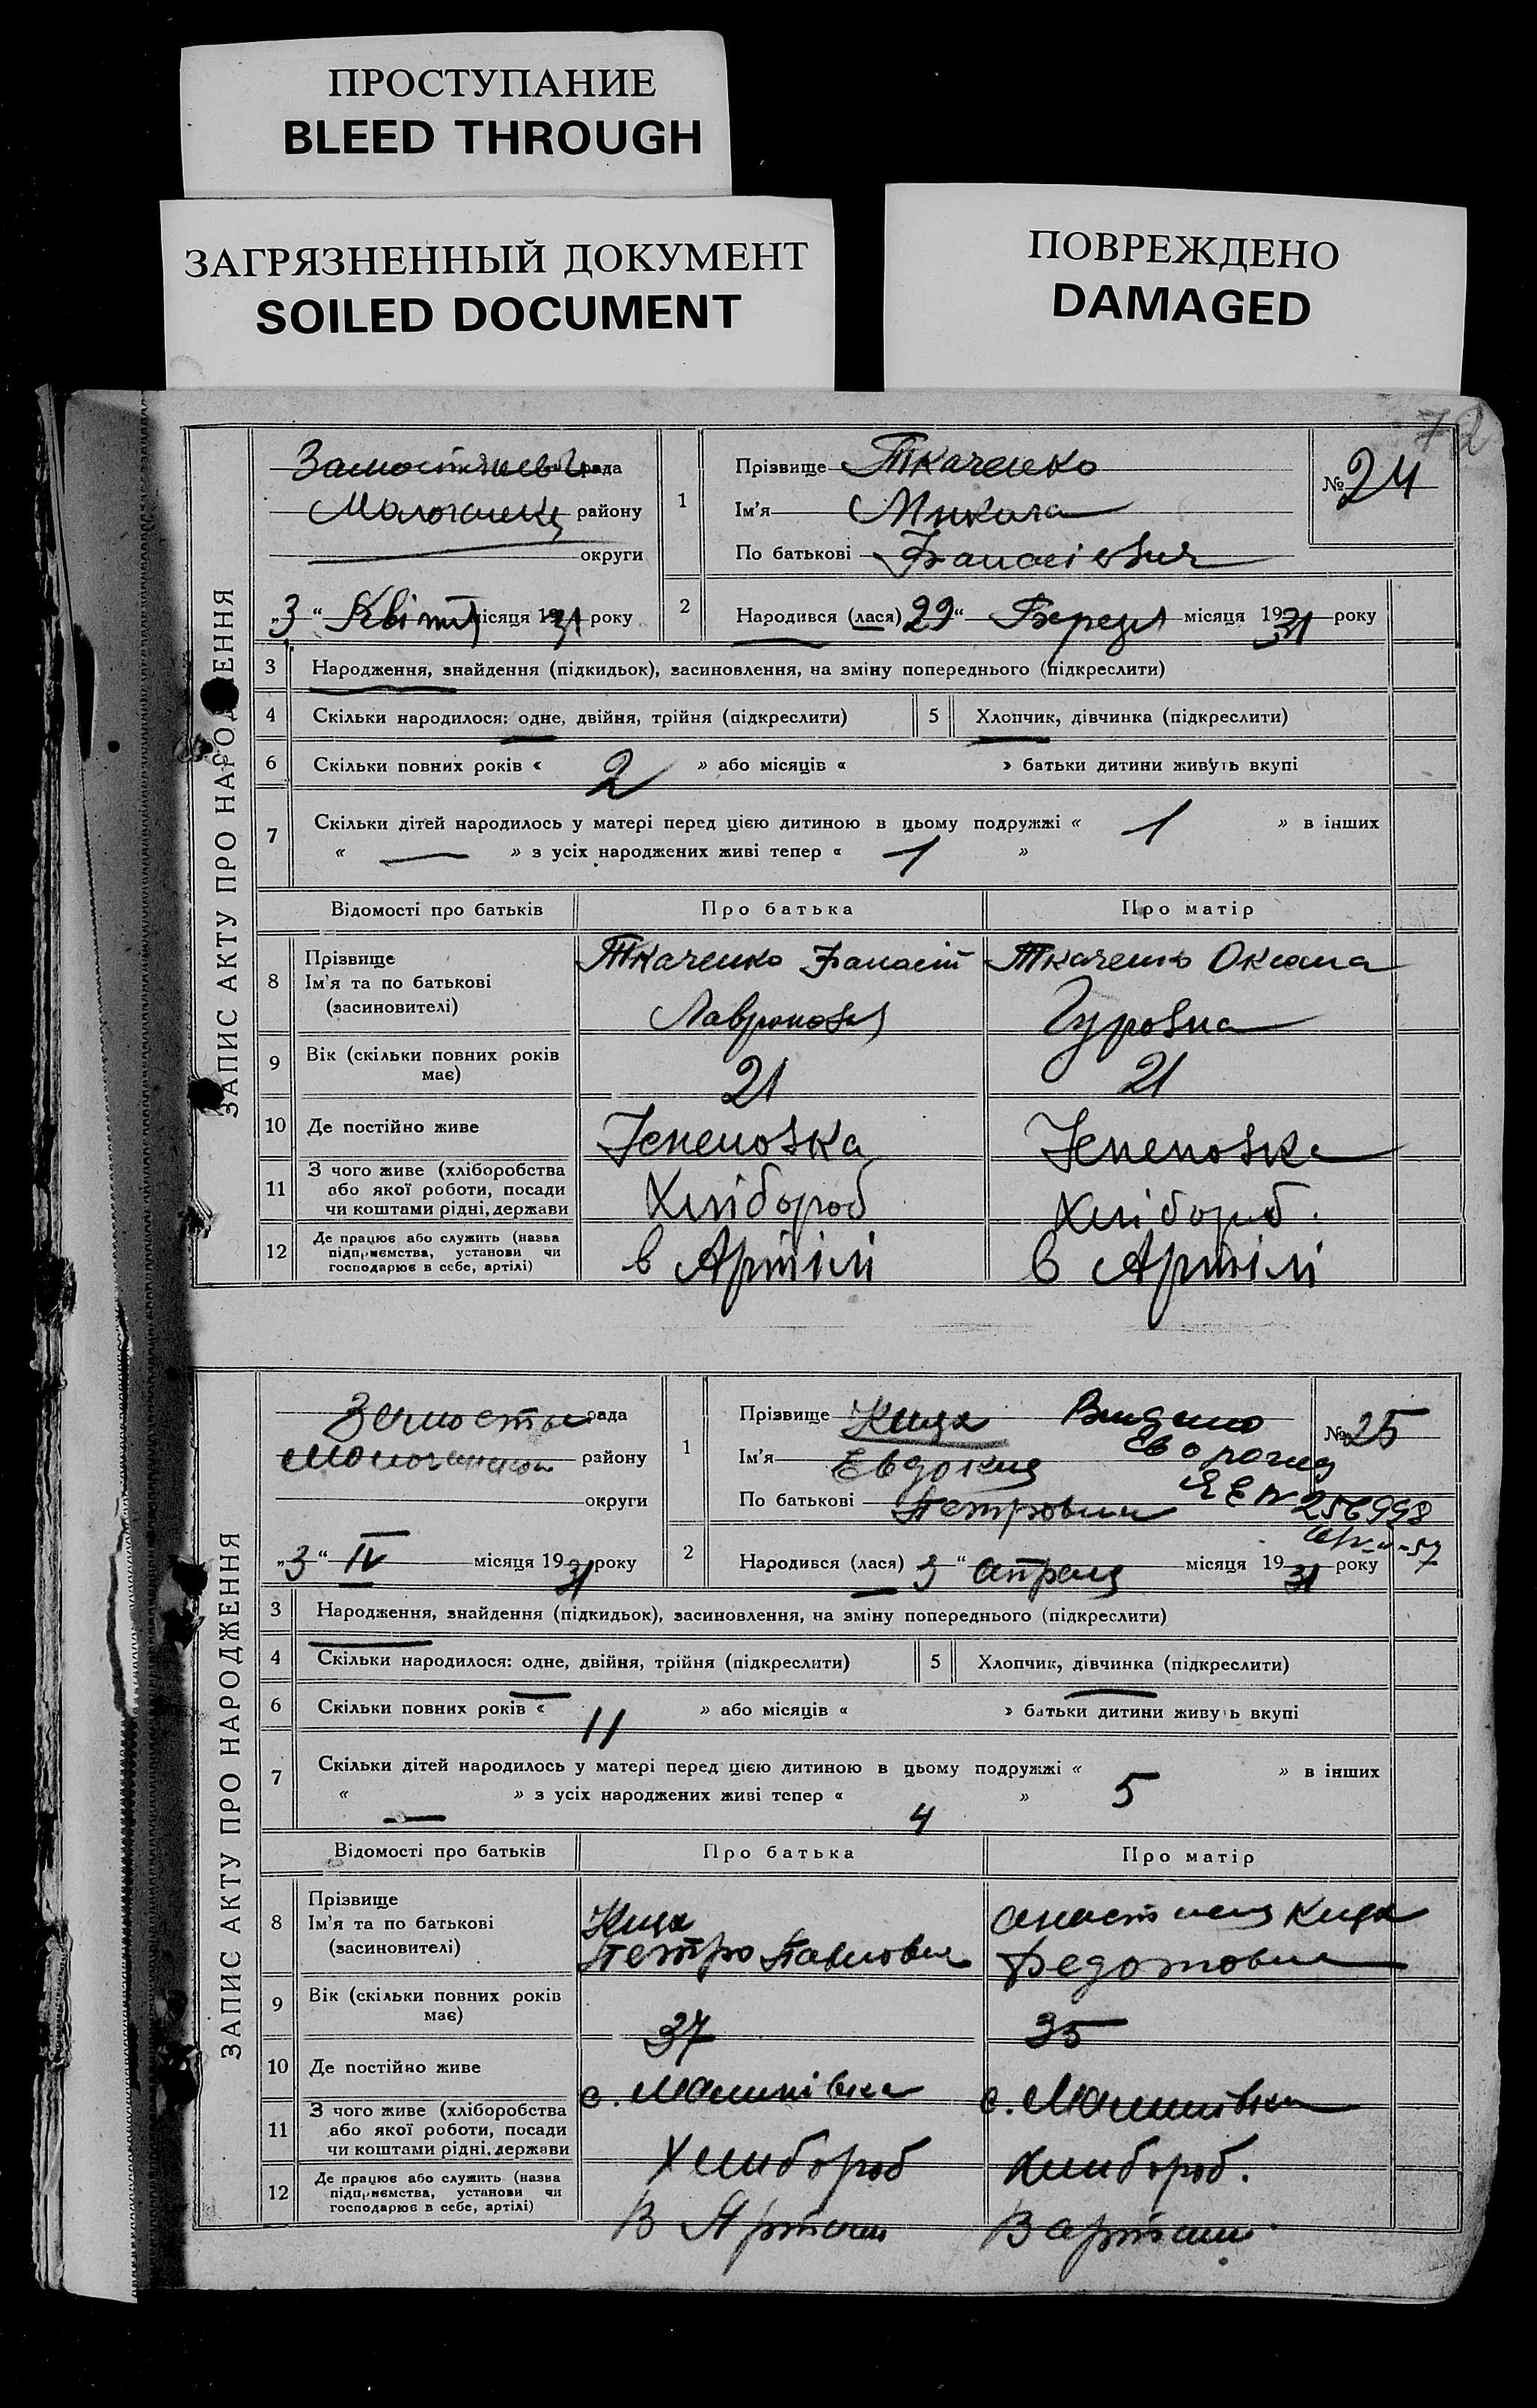 ПРОСТУПАНИЕ
BLEED THROUGH
ЗАГРЯЗНЕННЫЙ ДОКУМЕНТ
SOILED DOCUMENT
ПОВРЕЖДЕНО
DAMAGED
72
ЗАПИС АКТУ ПРО НАРОДЖЕННЯ
рада
району
округи
„3“ місяця 1931 року
1
Прізвище Ткаченко
Ім'я Микола
По батькові
№ 24
2 Народився (лася) 29“ місяця 1931 року
3 Народження, знайдення (підкидьок), засиновлення, на зміну попереднього (підкреслити)
4 Скільки народилося: одне, двійня, трійня (підкреслити) 5 Хлопчик, дівчинка (підкреслити)
6 Скільки повних років « 2 » або місяців « » батьки дитини живуть вкупі
7 Скільки дітей народилось у матері перед цією дитиною в цьому подружжі « 1 » в інших
« — » з усіх народжених живі тепер « 1 »
Відомості про батьків Про батька Про матір
8 Прізвище
Ім'я та по батькові
(засиновителі)
Ткаченко
Ткаченко Оксана
Гуровна
9 Вік (скільки повних років
має)
21 21
10 Де постійно живе
11 З чого живе (хліборобства
або якої роботи, посади
чи коштами рідні, держави
Хлібороб Хлібороб.
12 Де працює або служить (назва
підприємства, установи чи
господарює в себе, артілі)
в Артілі в Артілі
ЗАПИС АКТУ ПРО НАРОДЖЕННЯ
рада
району
округи
„3“ IV місяця 1931 року
1
Прізвище
Ім'я Евдокия
По батькові Петровна
№ 25
256998
2 Народився (лася) 3“ апреля місяця 1931 року
3 Народження, знайдення (підкидьок), засиновлення, на зміну попереднього (підкреслити)
4 Скільки народилося: одне, двійня, трійня (підкреслити) 5 Хлопчик, дівчинка (підкреслити)
6 Скільки повних років « 11 » або місяців « » батьки дитини живуть вкупі
7 Скільки дітей народилось у матері перед цією дитиною в цьому подружжі « 5 » в інших
« — » з усіх народжених живі тепер « 4 »
Відомості про батьків Про батька Про матір
8 Прізвище
Ім'я та по батькові
(засиновителі)
Петро Павлович
Федотовна
9 Вік (скільки повних років
має)
37 35
10 Де постійно живе
11 З чого живе (хліборобства
або якої роботи, посади
чи коштами рідні, держави
Хлибороб Хлибороб.
12 Де працює або служить (назва
підприємства, установи чи
господарює в себе, артілі)
В Артили В артили